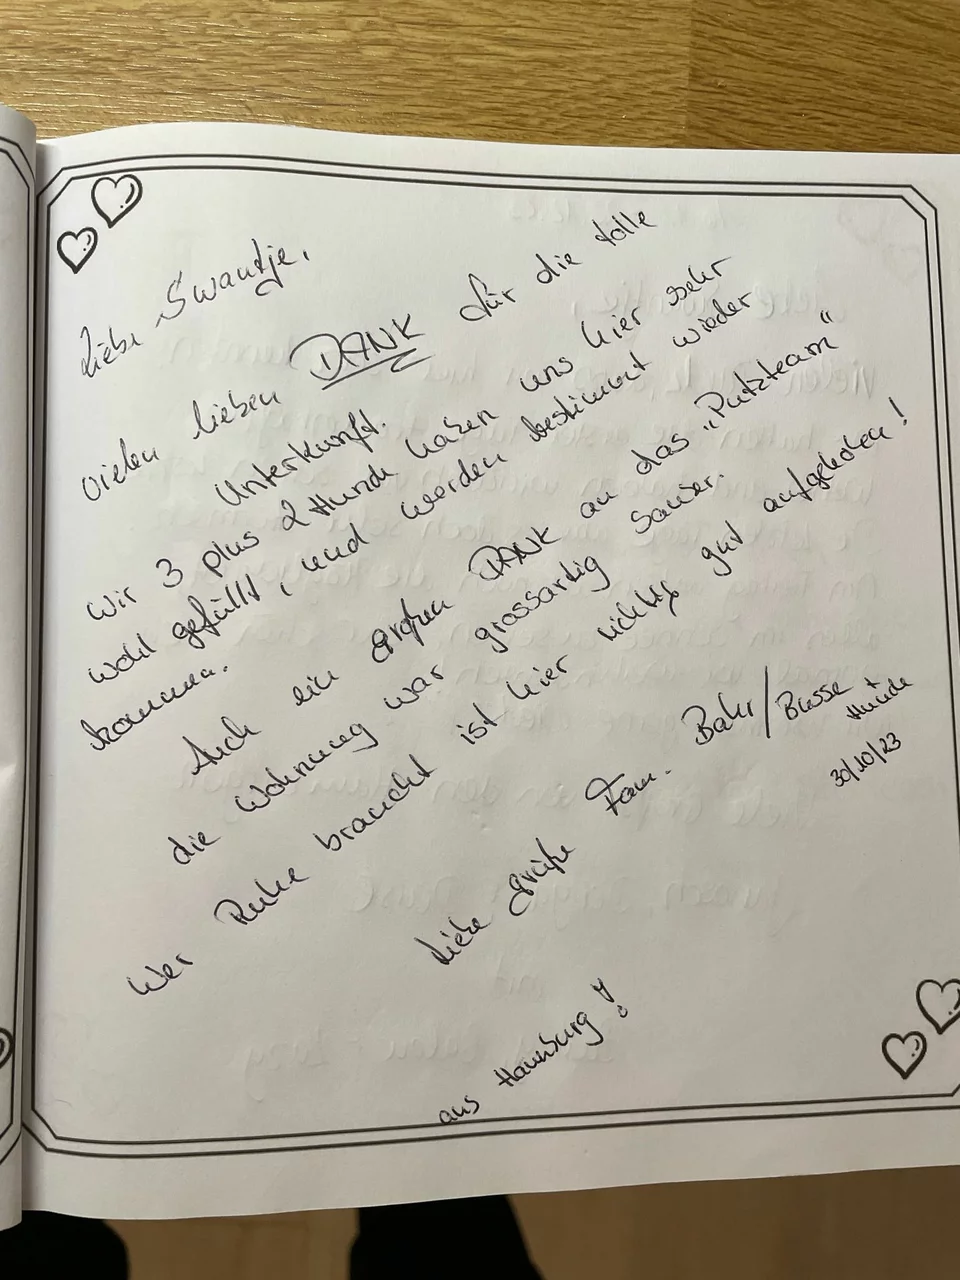 Liebe Swantje,
vielen lieben DANK für die tolle
Unterkunft.
Wir 3 plus 2 Hunde haben uns hier sehr
wohl gefühlt, und werden bestimmt wieder
kommen.
Auch ein großen DANK an das „Putzteam“
die Wohnung war grossartig sauber.
Wer Ruhe braucht ist hier richtig gut aufgehoben!
Liebe Grüße Fam. Bahr/Busse +
Hunde
30/10/23
aus Hamburg!